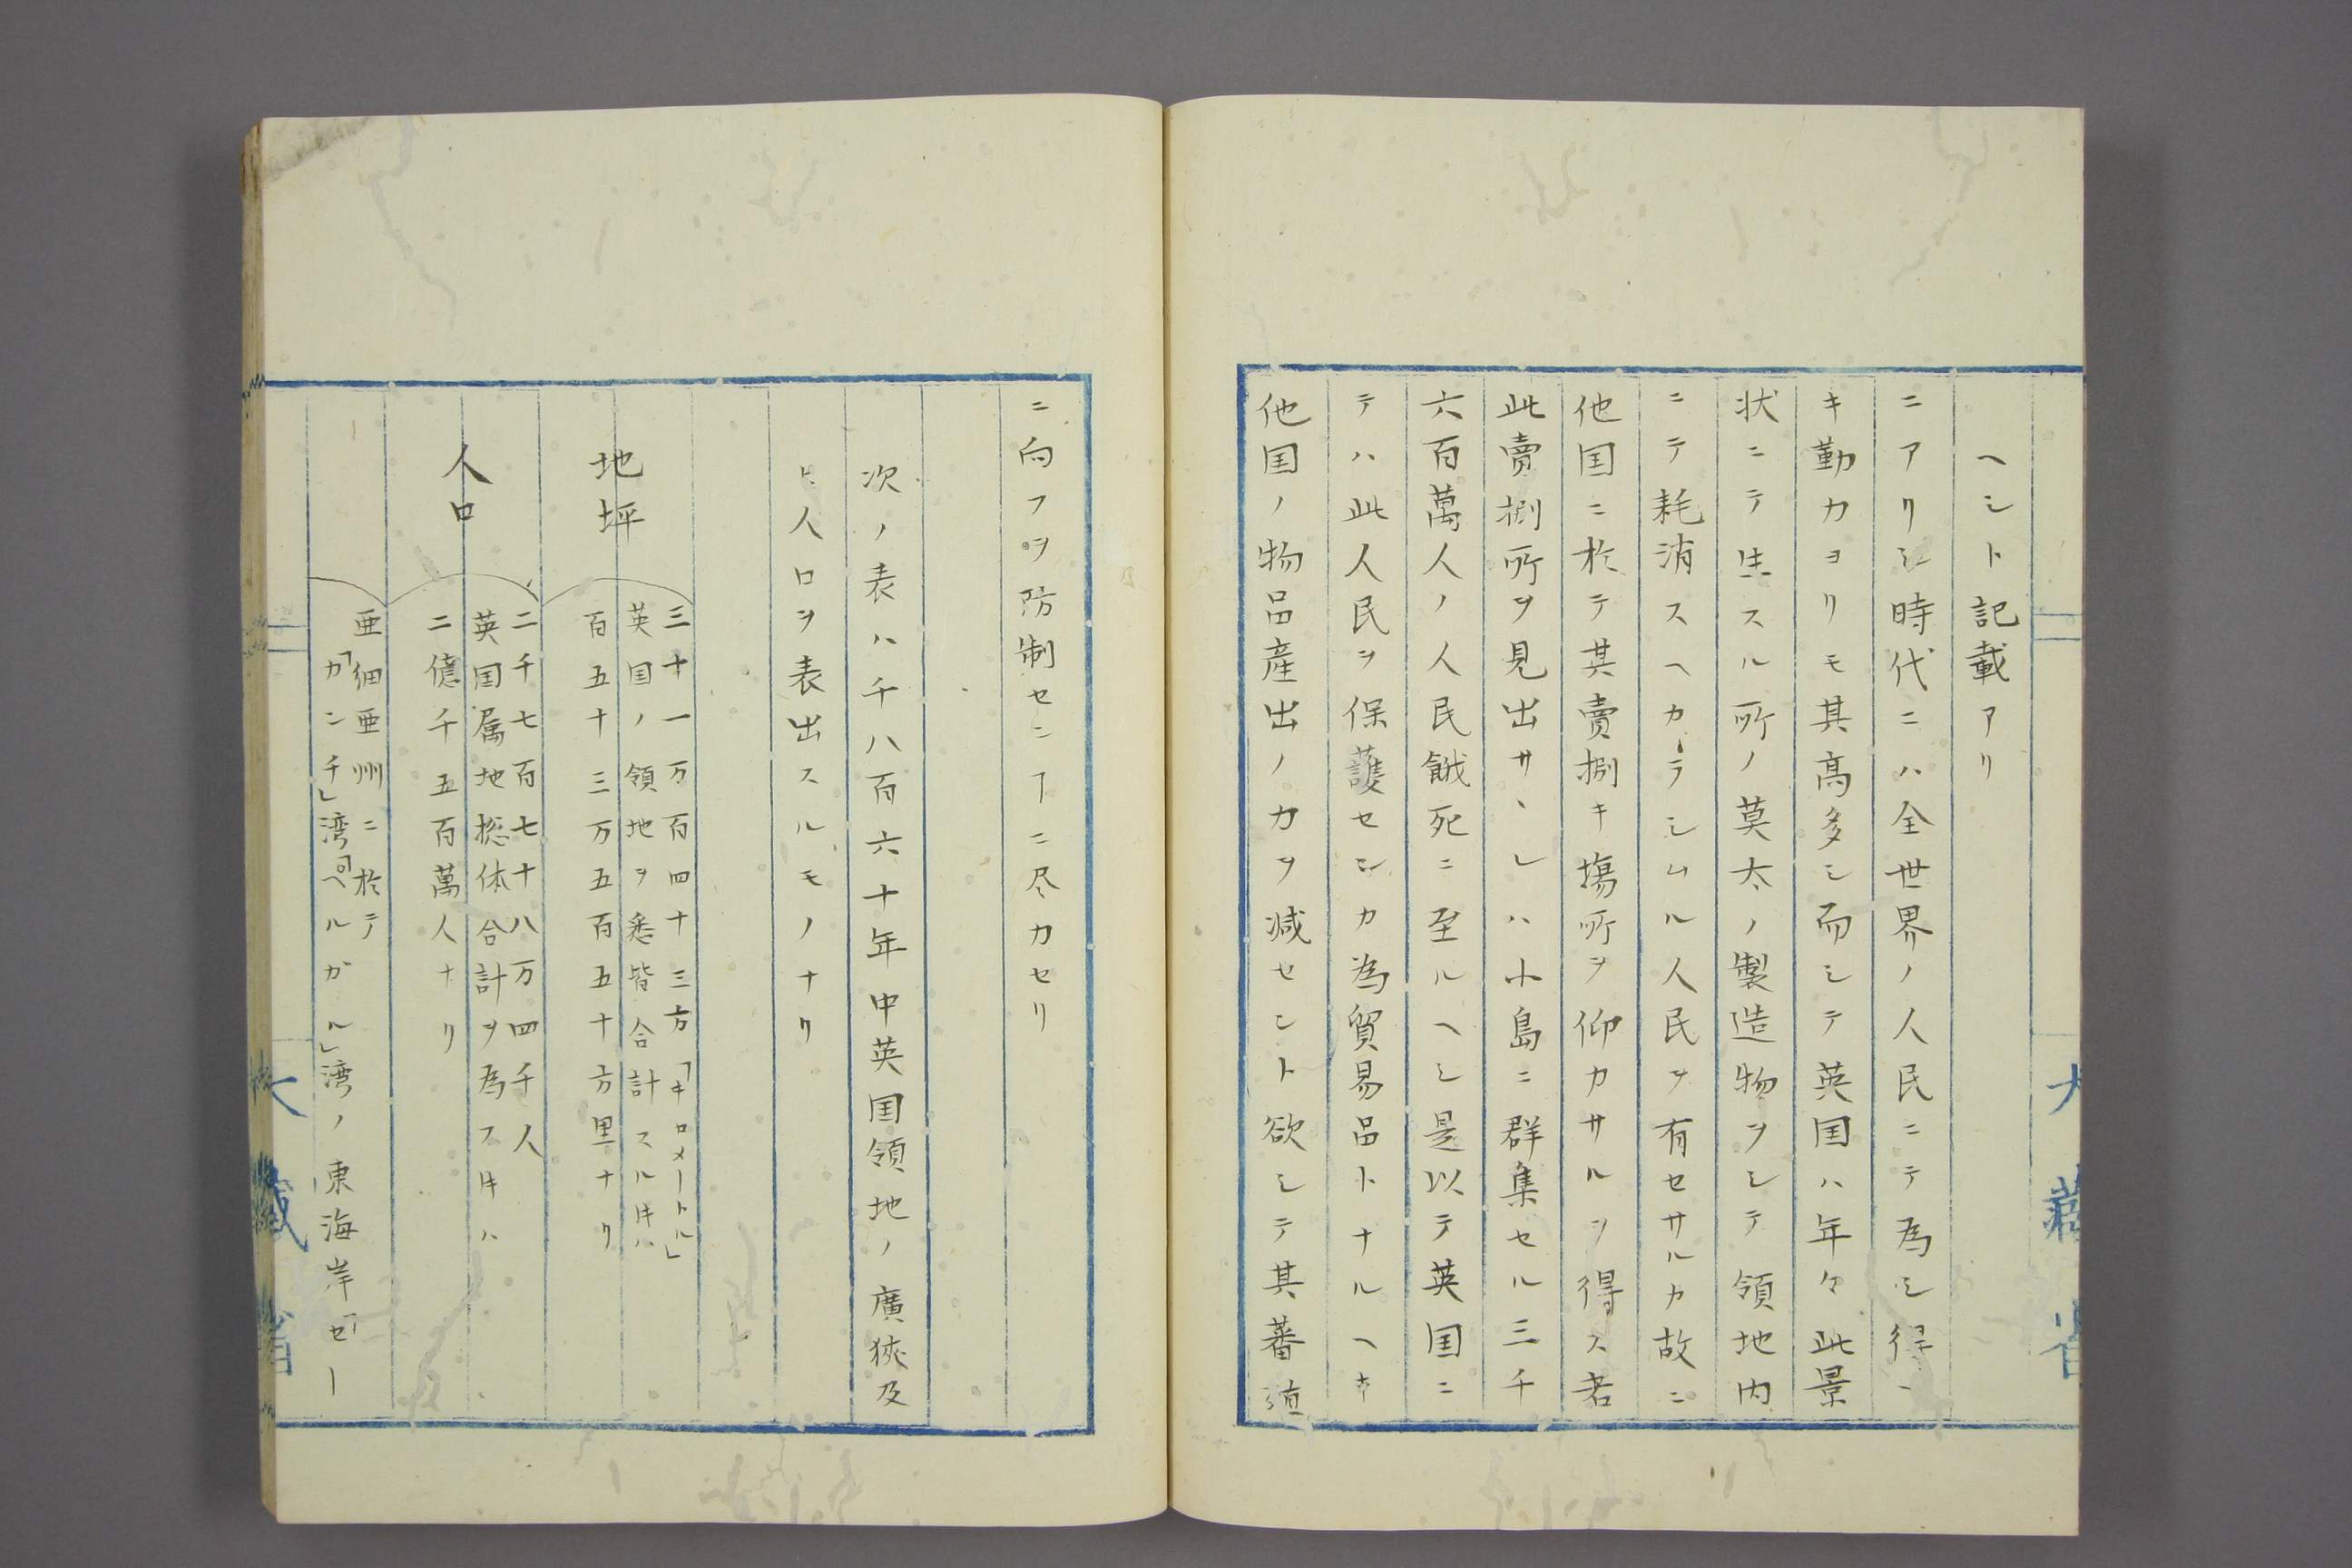 ヘシト記載アリ
ニアリシ時代ニハ全世界ノ人民ニテ為シ得ヘ
キ勤カヨリモ其高多シ而シテ英国ハ年々此景
状ニテ生スル所ノ莫太ノ製造物ヲシテ領地内
ニテ耗消スヘカラシムル人民ヲ有セサルカ故ニ
他国ニ於テ其賣捌キ塲所ヲ仰カサルヲ得ス若
此賣捌所ヲ見出サヽレハ小島ニ群集セル三千
六百萬人ノ人民餓死ニ至ルヘシ是以テ英国ニ
テハ此人民ヲ保護センカ為貿易品トナルヘキ
他国ノ物品産出ノカヲ减セント欲シテ其蕃殖
大藏省
ニ向フヲ防制センヿニ尽力セリ
次ノ表ハ千八百六十年中英国領地ノ廣狹及
ヒ人口ヲ表出スルモノナリ
地坪
三十一万百四十三方「キロメートル」
英国ノ領地ヲ悉皆合計スル時ハ
百五十三万五百五十方里ナリ
人口
二千七百七十八万四千人
英国属地捴体合計ヲ為ス時ハ
二億千五百萬人ナリ
亜細亜州ニ於テ
「カンチ」湾「ベルガル」湾ノ東海岸「セー
大藏省